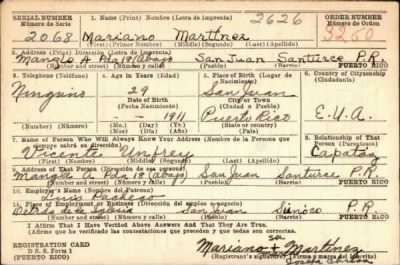 SERIAL NUMBER 1. Name (Print) (Nombre) (Letra de Imprenta) 2626 ORDER NUMBER
Número de Serie Número de Orden
2068 Mariano Martínez 3260
(First) (Primer Nombre) (Middle) (Segundo) (Last) (Apellido)
2. Address (Print) (Dirección) (Letra de Imprenta)
Manglo A Pda 18 abajo San Juan Santurce P.R.
(Number and street) (Número y calle) (Pueblo) (Barrio) PUERTO RICO
3. Telephone (Teléfono) 4. Age in Years (Edad) 5. Place of Birth (Lugar de Nacimiento) 6. Country of Citizenship (Ciudadanía)
Ninguno 29 San Juan
Date of Birth City or Town
(Fecha Nacimiento) (Ciudad o Pueblo) E.U.A.
- - 1911 Puerto Rico
(Number) (Número) (Mo.) (Day) (Yr.) (State or country)
(Mes) (Día) (Año) (Estado o país)
7. Name of Person Who Will Always Know Your Address (Nombre de la Persona que siempre sabrá su dirección) 8. Relationship of That Person (Parentesco)
Vicente Capataz
(First) (Nombre) (Middle) (Segundo) (Last) (Apellido)
9. Address of That Person (Dirección de esa persona)
Mangle A Pda 18 (abajo) San Juan Santurce P.R.
(Number and street) (Número y calle) (Pueblo) (Barrio) PUERTO RICO
10. Employer's Name (Nombre del Patrono)
Luis Pacheco
11. Place of Employment or Business (Lugar de Empleo o Negocio)
Detrás de Iglesia San Juan P.R.
(Number and street) (Número y calle) (Pueblo) (Barrio) PUERTO RICO
I Affirm That I Have Verified Above Answers and That They Are True.
(Afirmo que he verificado las contestaciones que preceden y que todas son correctas.)
REGISTRATION CARD
D S S. Form 1
(PUERTO RICO)
su
Mariano + Martínez
(Registrant's signature) (Firma o marca del inscrito)